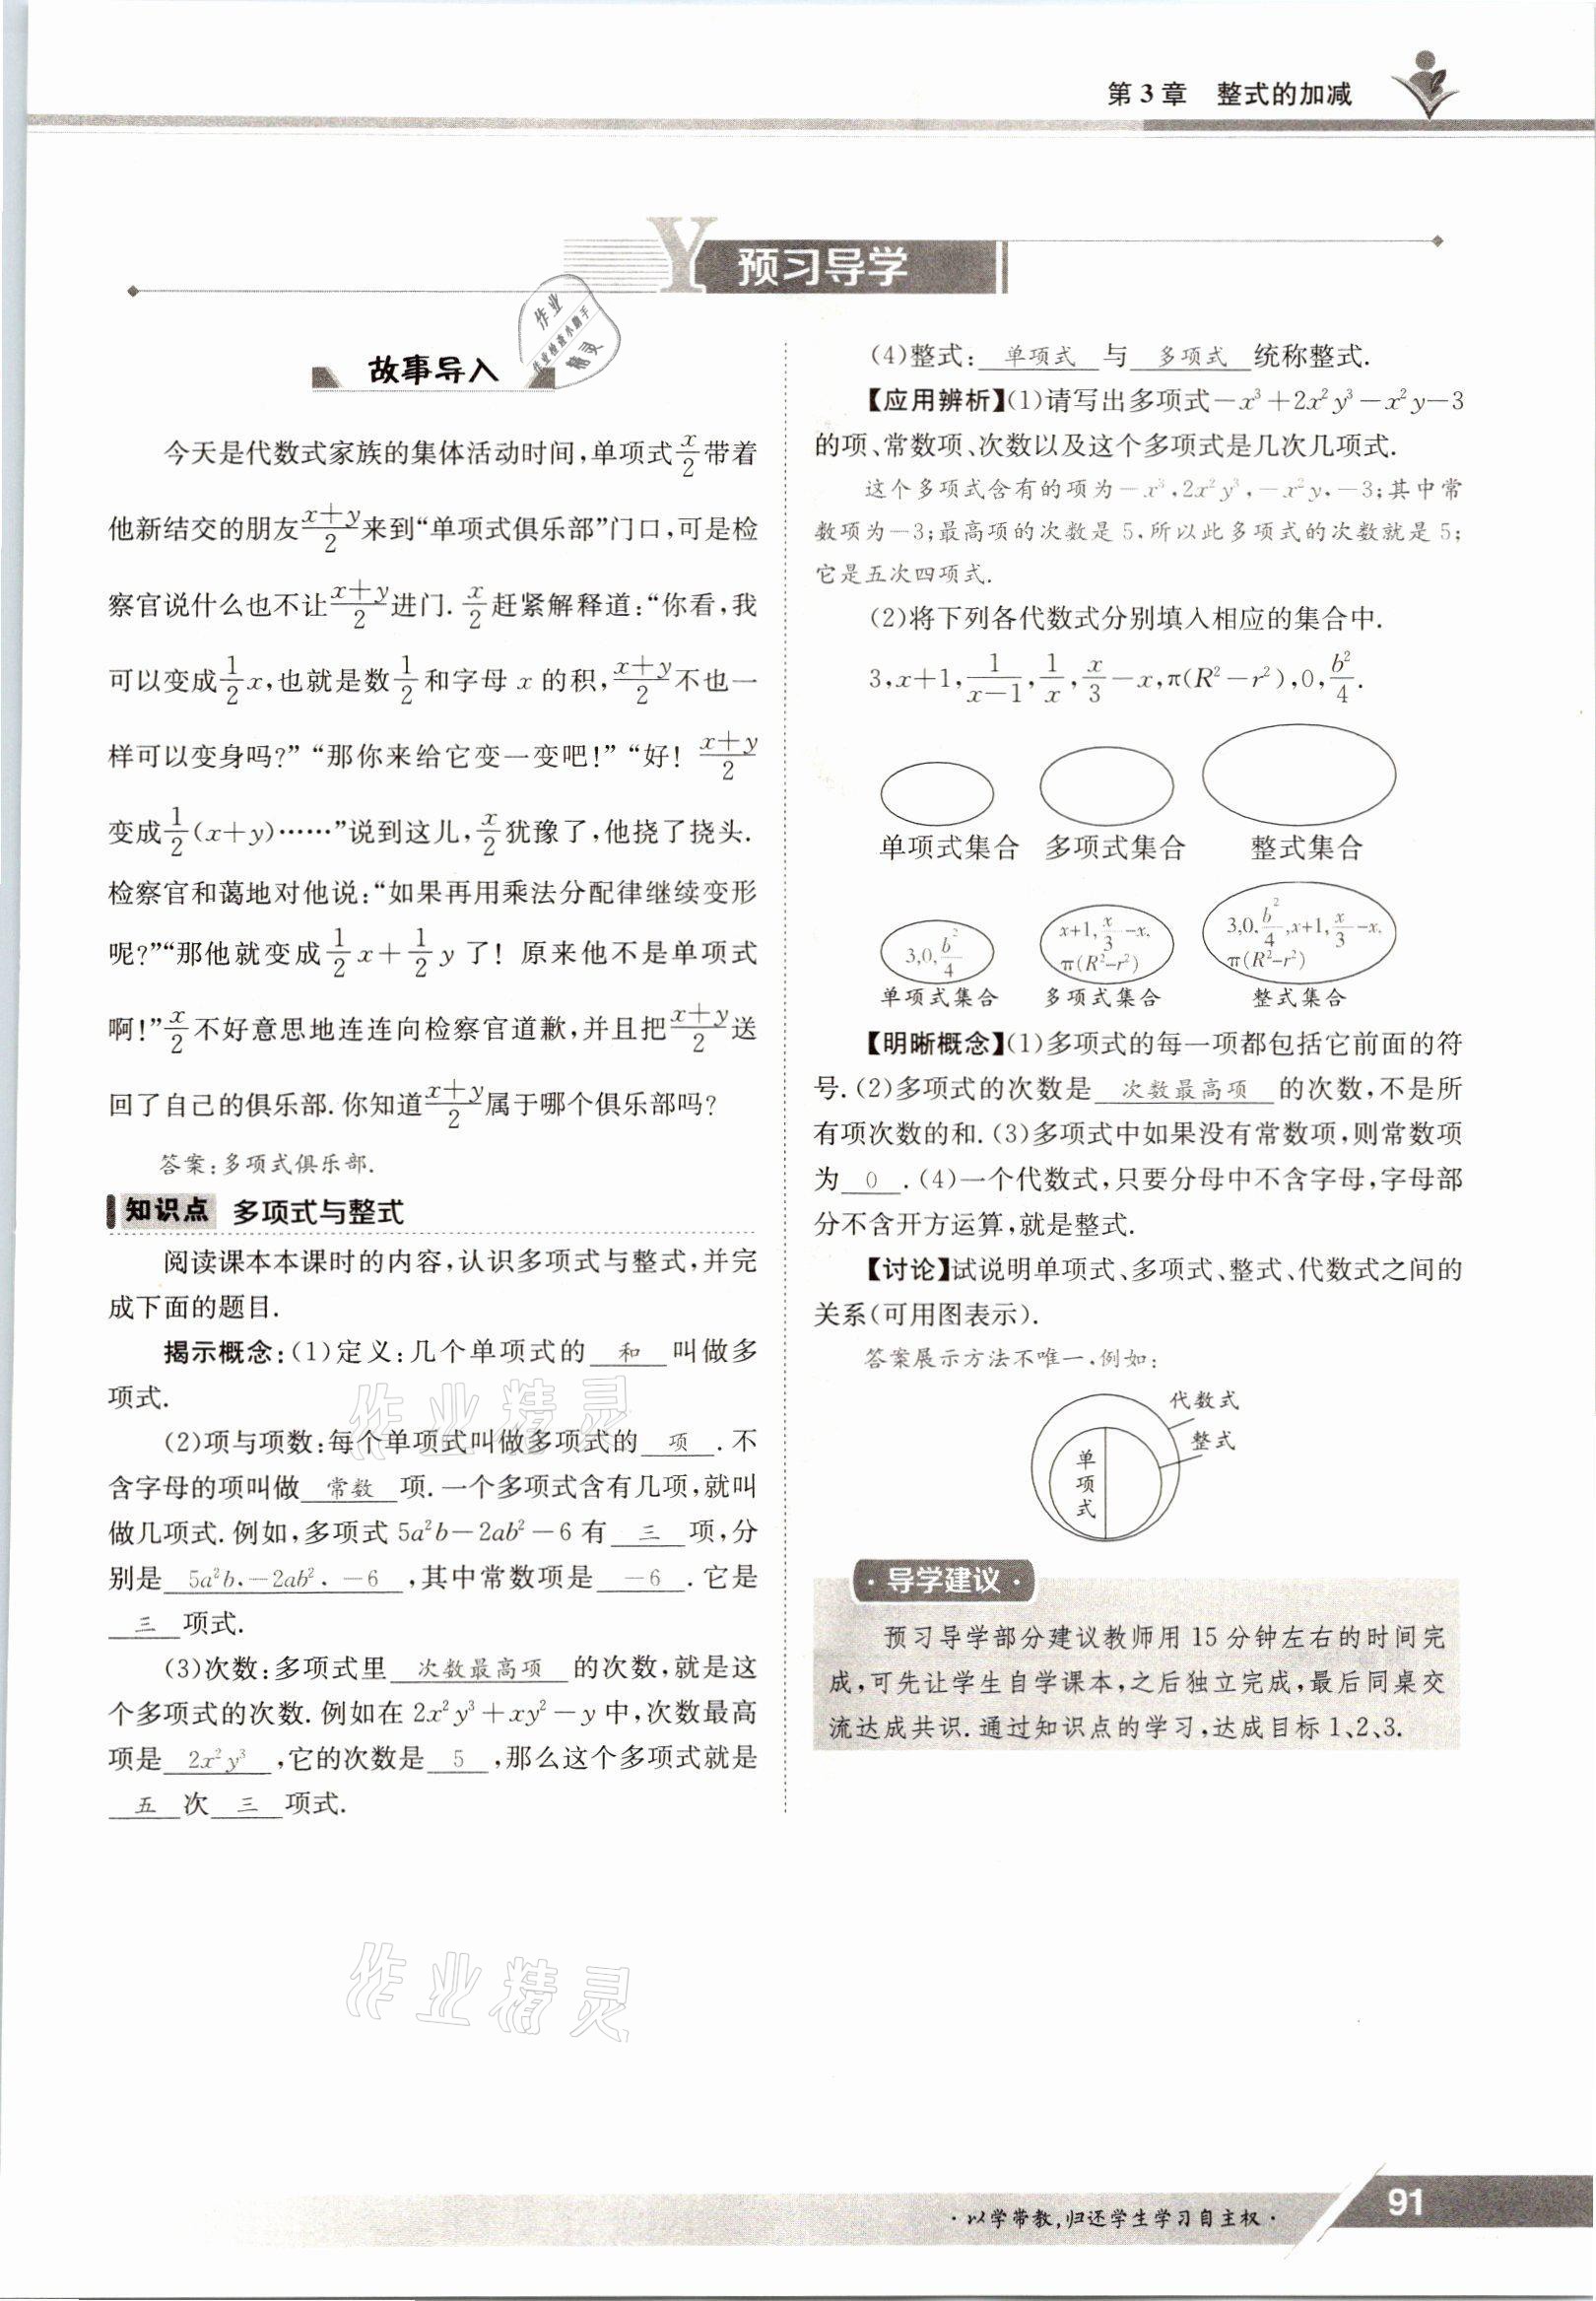 第 3 章　整式的加减
Y 预习导学
作业
作业检查小助手
精灵
故事导入
今天是代数式家族的集体活动时间,单项式x/2带着
他新结交的朋友(x+y)/2来到“单项式俱乐部”门口,可是检
察官说什么也不让(x+y)/2进门. x/2赶紧解释道:“你看,我
可以变成1/2x,也就是数1/2和字母 x 的积,(x+y)/2不也一
样可以变身吗?” “那你来给它变一变吧!” “好! (x+y)/2
变成1/2(x+y)……”说到这儿,x/2犹豫了,他挠了挠头.
检察官和蔼地对他说:“如果再用乘法分配律继续变形
呢?”“那他就变成1/2x+1/2y 了! 原来他不是单项式
啊!”x/2不好意思地连连向检察官道歉,并且把(x+y)/2送
回了自己的俱乐部. 你知道(x+y)/2属于哪个俱乐部吗?
答案:多项式俱乐部.
知识点 多项式与整式
阅读课本本课时的内容,认识多项式与整式,并完
成下面的题目.
揭示概念:(1)定义:几个单项式的 和 叫做多
项式.
(2)项与项数:每个单项式叫做多项式的 项 . 不
含字母的项叫做 常数 项. 一个多项式含有几项,就叫
做几项式. 例如,多项式 5a²b-2ab²-6 有 三 项,分
别是 5a²b,-2ab²,-6 ,其中常数项是 -6 . 它是
三 项式.
(3)次数:多项式里 次数最高项 的次数,就是这
个多项式的次数. 例如在 2x²y³+xy²-y 中,次数最高
项是 2x²y³ ,它的次数是 5 ,那么这个多项式就是
五 次 三 项式.
(4)整式: 单项式 与 多项式 统称整式.
【应用辨析】(1)请写出多项式-x³+2x²y³-x²y-3
的项、常数项、次数以及这个多项式是几次几项式.
这个多项式含有的项为-x³,2x²y³,-x²y,-3;其中常
数项为-3;最高项的次数是 5,所以此多项式的次数就是 5;
它是五次四项式.
(2)将下列各代数式分别填入相应的集合中.
3,x+1,1/(x-1),1/x,x/3-x,π(R²-r²),0,b²/4.
单项式集合 多项式集合 整式集合
3,0,b²/4
x+1,x/3-x,
π(R²-r²)
3,0,b²/4,x+1,x/3-x,
π(R²-r²)
单项式集合 多项式集合 整式集合
【明晰概念】(1)多项式的每一项都包括它前面的符
号. (2)多项式的次数是 次数最高项 的次数,不是所
有项次数的和. (3)多项式中如果没有常数项,则常数项
为 0 . (4)一个代数式,只要分母中不含字母,字母部
分不含开方运算,就是整式.
【讨论】试说明单项式、多项式、整式、代数式之间的
关系(可用图表示).
答案展示方法不唯一,例如:
代数式
整式
单项式
· 导学建议 ·
预习导学部分建议教师用 15 分钟左右的时间完
成,可先让学生自学课本,之后独立完成,最后同桌交
流达成共识. 通过知识点的学习,达成目标 1、2、3.
作业精灵
作业精灵
· 以学带教,归还学生学习自主权 ·
91